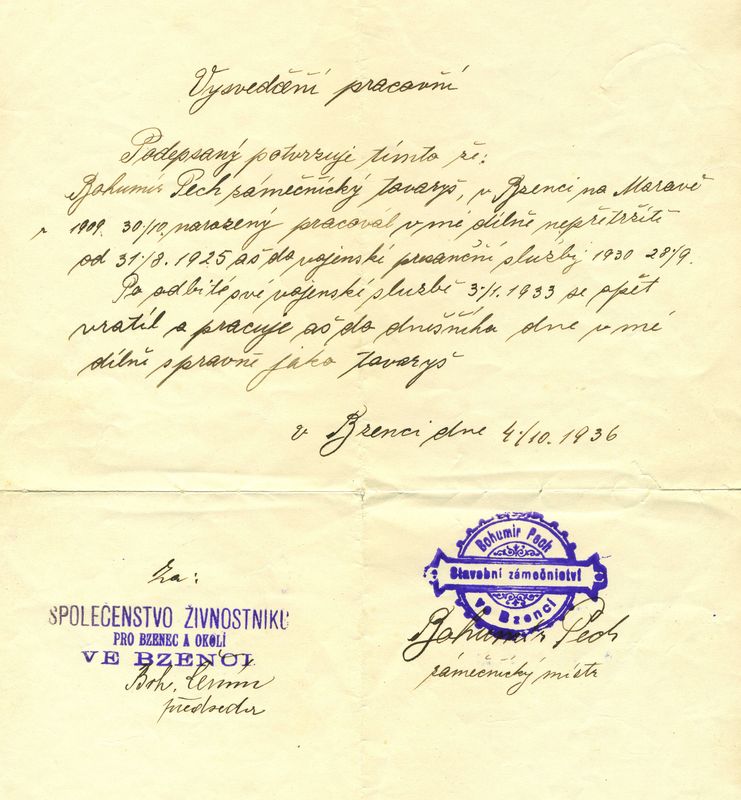 Vysvedčění pracovní
Podepsaný potvrzuje tímto že:
Bohumír Pech zámečnický tovaryš, v Bzenci na Moravě
r 1909. 30./10. narozený pracoval v mé dílně nepřetržitě
od 31./8. 1925 až do vojenské presenční služby 1930 28./9.
Po odbité své vojenské službě 3./1. 1933 se opět
vrátil a pracuje až do dnešního dne v mé
dílně spravně jako tovaryš
v Bzenci dne 4./10. 1936
Za:
SPOLEČENSTVO ŽIVNOSTNIKU
PRO BZENEC A OKOLÍ
VE BZENCI
Boh.
předseda
Bohumír Pech
Stavební zámečnictví
ve Bzenci
Bohumír Pech
zámečnický mistr